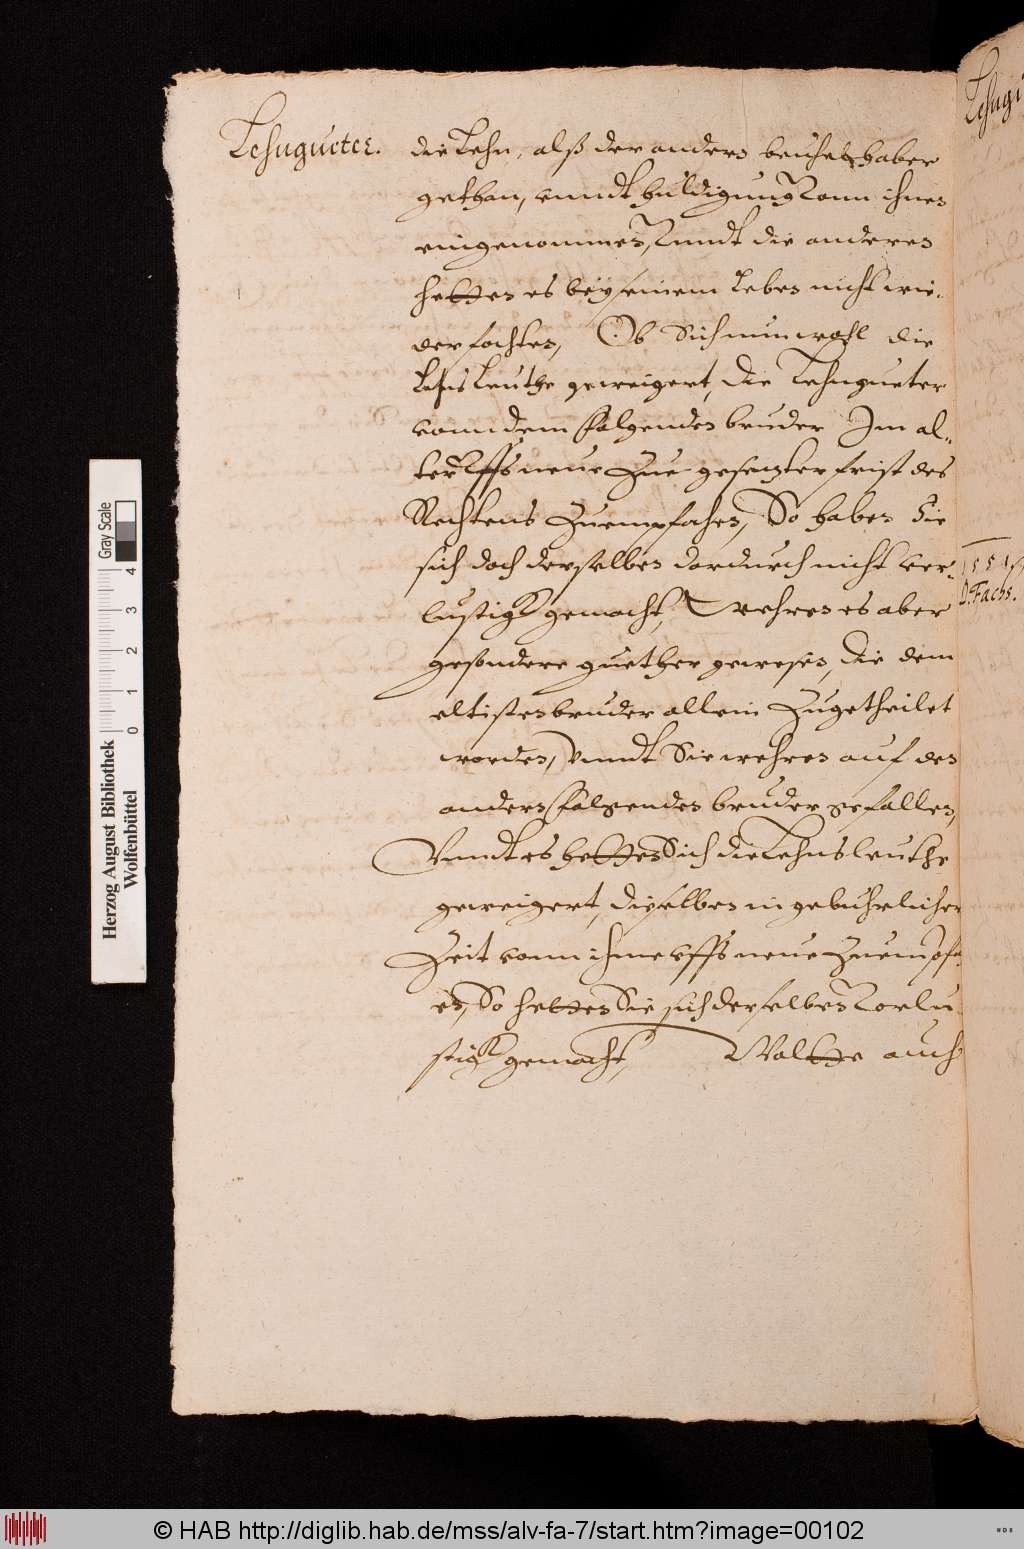 Lehngueter.
die Lehn, alß der anders beuhel haber
gethan, unndt huldigung vonn ihnen
eingenommen, unndt die anderen
hetten es bey seinem leben nicht wie-
derfochten, Ob Sich nun wohl die
Lehnsleuthe geweigert, die Lehngueter
vonn dem folgenden bruder Im al-
ter uffs neue Zue gesetzter frist des
Rechtens Zuempfahen, So haben Sie
sich doch derselben dardurch nicht ver-
lustigk gemacht, Wehren es aber
gesondere guether gewesen, die dem
eltisten bruder allein Zugetheilet
worden, Unndt Sie wehren auf den
andern folgenden bruder gefallen,
Unndt es hetten Sich die Lehnsleuthe
geweigert, dieselben in geburlicher
Zeit vonn ihme uffs neue Zuempfa
en, So hetten Sie sich derselben vorlu
stigk gemacht, Wolte auch
Lehngü
1551
D. Fachs.
Herzog August Bibliothek
Wolfenbüttel
0 1 2 3 4
Gray Scale
© HAB http://diglib.hab.de/mss/alv-fa-7/start.htm?image=00102